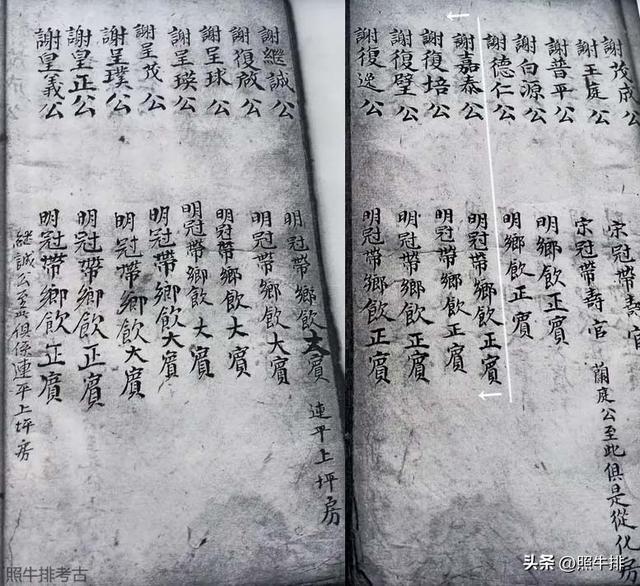 謝茂成公
謝王庭公
謝普平公
謝白源公
謝德仁公
謝嘉泰公
謝復培公
謝復璧公
謝復逸公
宋冠帶壽官
蘭庭公至此俱是從化房
宋冠帶壽官
明鄉飲正賓
明鄉飲正賓
明冠帶鄉飲正賓
明冠帶鄉飲正賓
明冠帶鄉飲正賓
明冠帶鄉飲正賓
謝繼誠公
謝復啟公
謝呈球公
謝呈瑛公
謝呈茂公
謝呈璞公
謝皇正公
謝皇義公
明冠帶鄉飲大賓 連平上坪房
明冠帶鄉飲大賓
明冠帶鄉飲大賓
明冠帶鄉飲大賓
明冠帶鄉飲大賓
明冠帶鄉飲大賓
明冠帶鄉飲正賓
明冠帶鄉飲正賓
繼誠公至此俱係連平上坪房
照牛排考古
头条 @照牛排